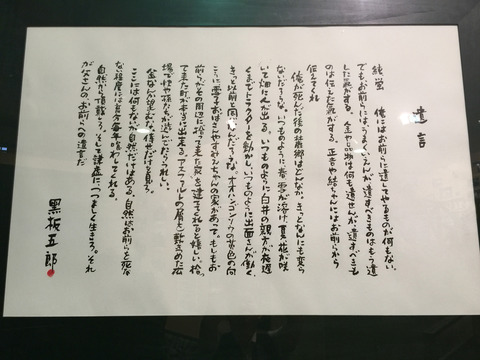 遺言
純、蛍 俺にはお前らに遺してやるものが何もない。
でも、お前らには、うまくいえんが、遺すべきものはもう遺
した気がする。金や品物は何も遺せんが、遺すべきも
のは伝した気がする。正吉や結ちゃんにはお前らから
伝えてくれ
俺が死んだ後の麓郷はどんなか。きっとなんにも変ら
ないだろうな。いつものように、春、雪が溶け、夏、花が咲
いて畑に人が出る。いつものように白井の親方が夜遅
くまでトラクターを動かし、いつものように出面さんが働く。
きっと以前と同じなんだろうな。オオハンゴンソウの黄色の向
こうに、雪子おばさんやすみえちゃんの家があって。もしもお
前らがその周辺に「拾って来た家」を建ててくれると嬉しい。拾っ
て来た町が本当に出来る。アスファルトの屑を敷きつめた広
場で快や孫たちが遊んでたらうれしい。
金なんか望むな。倖せだけを見ろ。
ここには何もないが自然だけはある。自然はお前らを死な
ない程度には充分毎年喰わしてくれる。
自然から頂戴しろ。そして謙虚に、つつましく生きろ。それ
が父さんのお前らへの遺言だ
黒板五郎